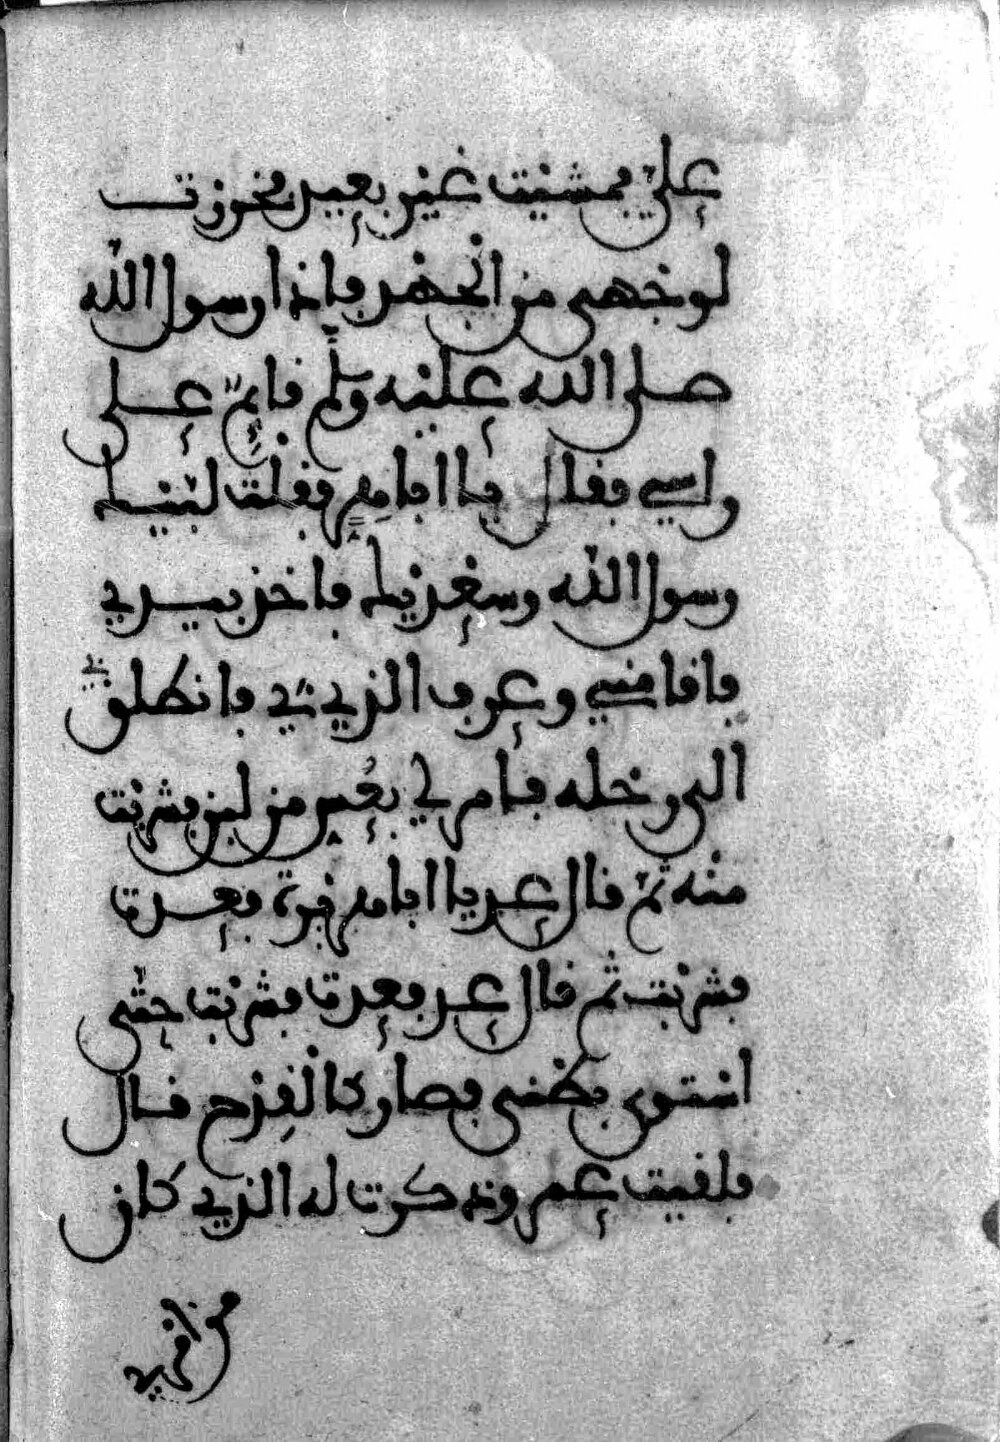 علي فمشيت غير بعيد فخررت
لوجهي من الجهد فإذا رسول الله
صلى الله عليه وسلم قايم على
راسي فقال يا ابا هر فقلت لبيك
رسول الله وسعديك فاخذ بيدي
فاقامني وعرف الذي بي فانطلق بي
الى رحله فامر لي بعس من لبن فشربت
منه ثم قال عد يا ابا هر فعدت
فشربت ثم قال عد فعدت فشربت حتى
استوى بطني فصار كالقدح قال
فلقيت عمر وذكرت له الذي كان
من امري